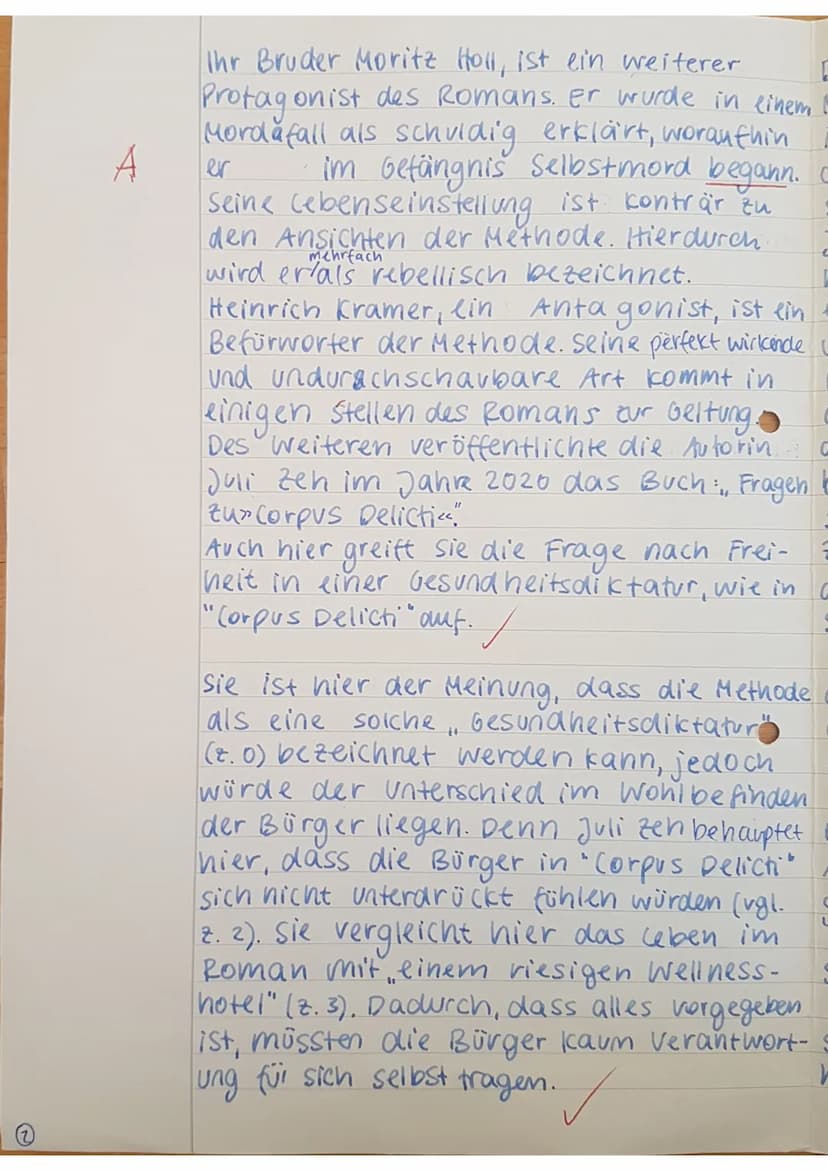 Ihr Bruder Moritz Holl, ist ein weiterer
Protagonist des Romans. Er wurde in einem
Mordfall als schuldig erklärt, woraufhin
A er im Gefängnis Selbstmord begann.
Seine Lebenseinstellung ist konträr zu
den Ansichten der Methode. Hierdurch
wird er mehrfach als rebellisch bezeichnet.
Heinrich Kramer, ein Antagonist, ist ein
Befürworter der Methode. Seine perfekt wirkende
und undurchschaubare Art kommt in
einigen Stellen des Romans zur Geltung.
Des Weiteren veröffentlichte die Autorin
Juli Zeh im Jahre 2020 das Buch: „Fragen
zu »Corpus Delicti«".
Auch hier greift sie die Frage nach Frei-
heit in einer Gesundheitsdiktatur, wie in
"Corpus Delicti" auf.
Sie ist hier der Meinung, dass die Methode
als eine solche „Gesundheitsdiktatur"
(z. 0) bezeichnet werden kann, jedoch
würde der Unterschied im Wohlbefinden
der Bürger liegen. Denn Juli Zeh behauptet
hier, dass die Bürger in "Corpus Delicti"
sich nicht unterdrückt fühlen würden (vgl.
z. 2). Sie vergleicht hier das Leben im
Roman mit „einem riesigen Wellness-
hotel" (z. 3). Dadurch, dass alles vorgegeben
ist, müssten die Bürger kaum Verantwort-
ung für sich selbst tragen.
2